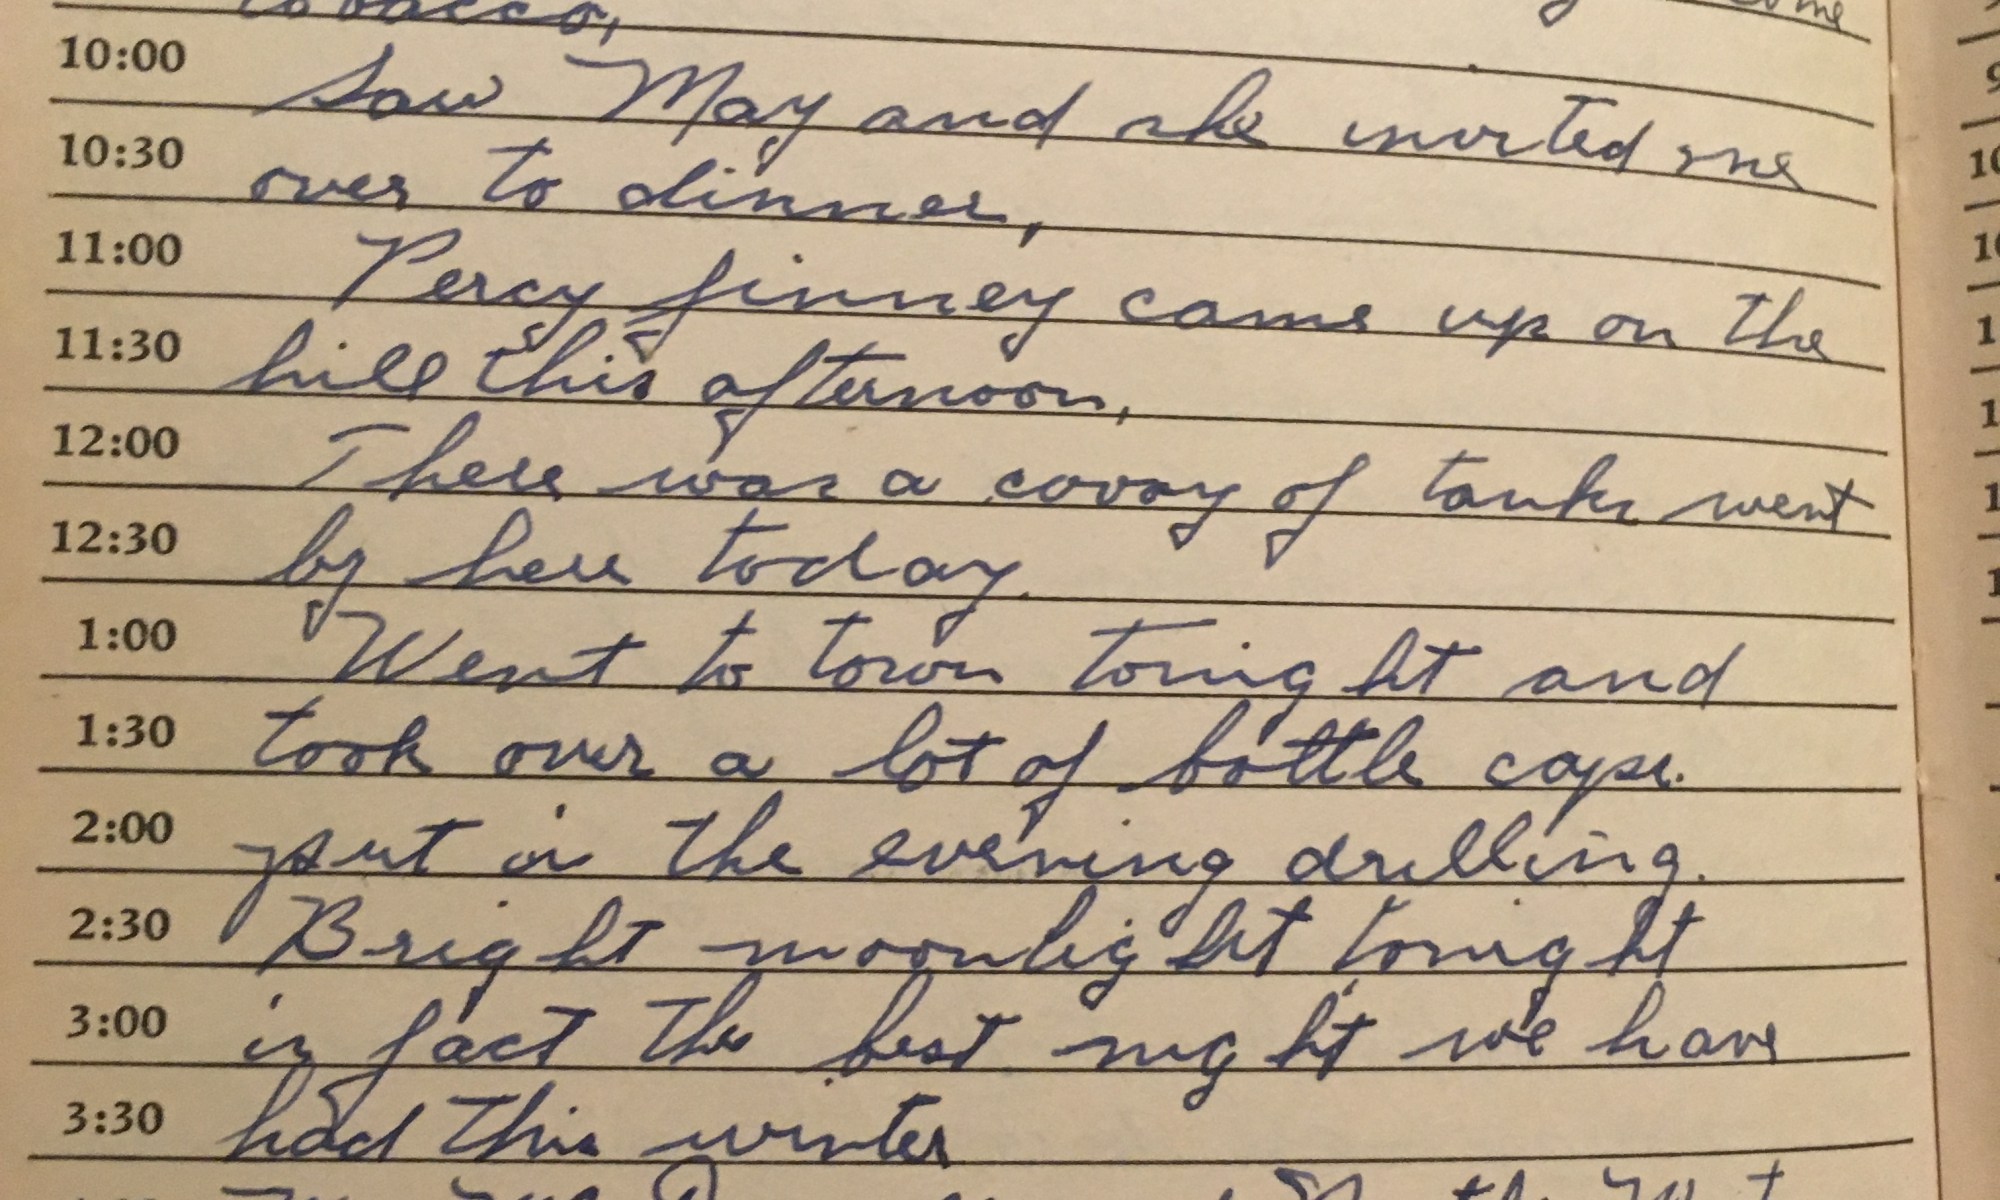 tobacco,
10:00 Saw May and she invited me
10:30 over to dinner,
11:00 Percy finney came up on the
11:30 hill this afternoon,
12:00 There was a covoy of tanks went
12:30 by here today.
1:00 Went to town tonight and
1:30 took over a lot of bottle caps.
2:00 put in the evening drilling.
2:30 Bright moonlight tonight
3:00 in fact the best night we have
3:30 had this winter